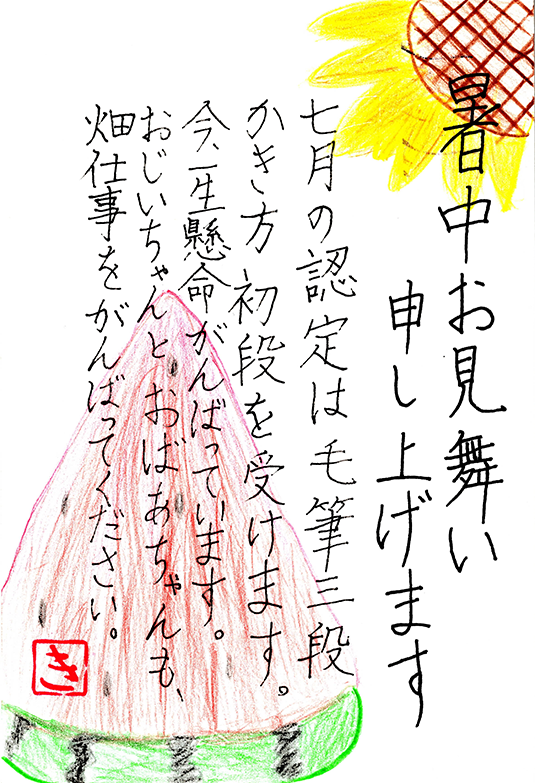 暑中お見舞い
申し上げます
七月の認定は毛筆三段
かき方初段を受けます。
今、一生懸命がんばっています。
おじいちゃんとおばあちゃんも、
畑仕事をがんばってください。
き